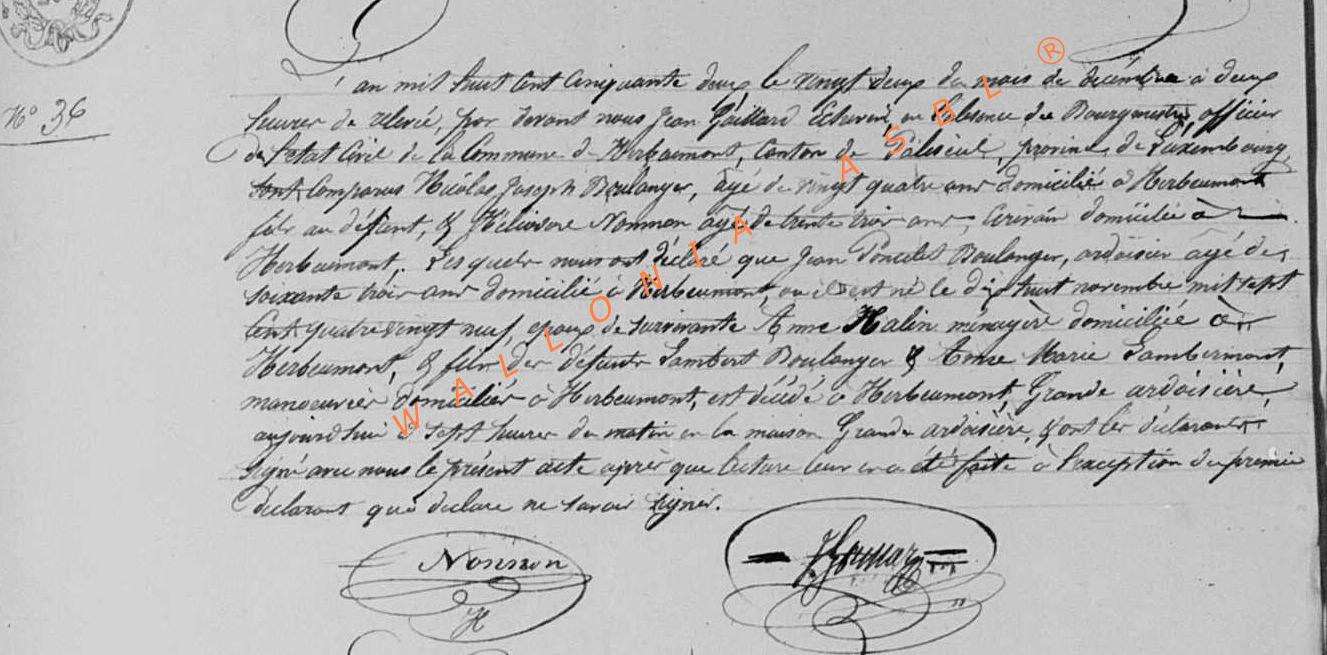 N° 36
an mil huit cent cinquante deux le vingt deux du mois de décembre à deux
heures de relevée, par devant nous Jean Gaillard Echevin, en l'absence du Bourgmestre, officier
de l'état Civil de la Commune d'Herbeumont, Canton de Paliseul, province de Luxembourg,
sont comparus Nicolas Joseph Boulanger, agé de vingt quatre ans domicilié à Herbeumont
fils au défunt, & Héliodore Nonnon agé de trente trois ans, Ecrivain domicilié à
Herbeumont, Lesquels nous ont déclaré que Jean Poncelet Boulanger, ardoisier agé de
soixante trois ans domicilié à Herbeumont, où il est né le dix huit novembre mil sept
Cent quatre vingt neuf, époux de survivante Anne Halin ménagère domiciliée à
Herbeumont, & fils des défunts Lambert Boulanger & Anne Marie Lambermont,
manoeuvriers domiciliés à Herbeumont, est décédé à Herbeumont, Grande ardoisière,
aujourd'hui à sept heures du matin en la maison Grande ardoisière, & ont les déclarants
signé avec nous le présent acte après que lecture leur en a été faite à l'exception du premier
déclarant qui a déclaré ne savoir signer.
Nonnon
H
WALLONIA ASBL ®